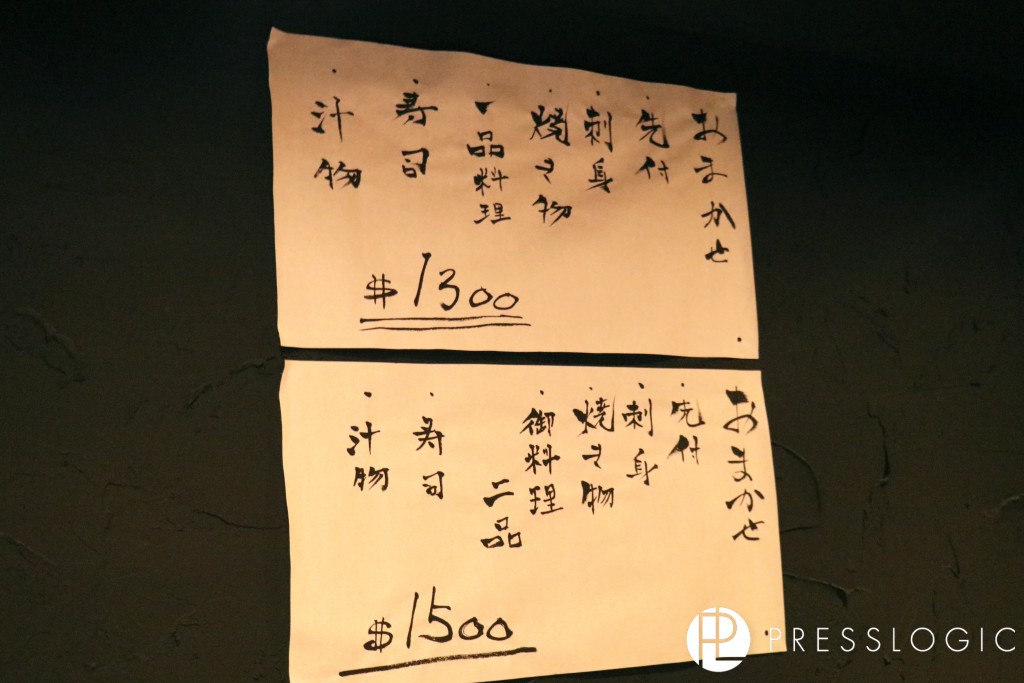 おまかせ
・先付
・刺身
・焼き物
・一品料理
・寿司
・汁物
$1300
おまかせ
・先付
・刺身
・焼き物
・御料理
二品
・寿司
・汁物
$1500
PRESSLOGIC